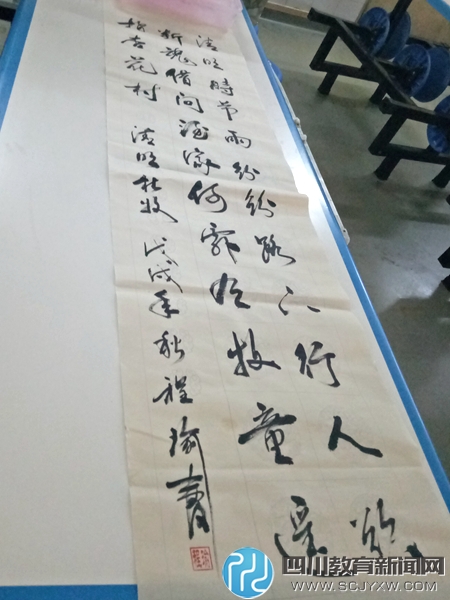 清明時节雨紛紛路上行人欲
断魂借问酒家何處有牧童遥
指杏花村 清明杜牧 戊戌年秋程瑜
四川教育新闻网
SCJYXW.COM